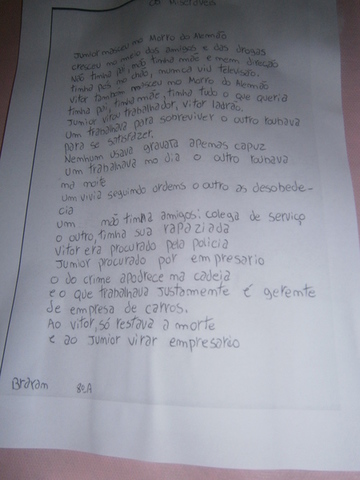 OS Miseráveis
Junior nasceu no Morro do Alemão
chesceu no meio dos amigos e das drogas
Não tinha pai, não tinha mãe e nem direção
tinha pés no chão, nunca viu televisão.
Vitor tambem nasceu no Morro do Alemão
tinha pai, tinha mãe, tinha tudo o que queria
Junior virou trabalhador, vitor ladrão.
Um trabalhava para sobreviver o outro roubava
para se satisfazer.
Nenhum usava gravata apenas capuz
Um trabalhava no dia o outro roubava
na noite
Um vivia seguindo ordens o outro as desobede-
cia
um não tinha amigos: colega de serviço
o outro, tinha sua rapaziada
Vitor era procurado pela policia
Junior procurado por empresario
o do crime apodrece na cadeia
e o que trabalhava justamente é gerente
de empresa de carros.
Ao vitor, só restava a morte
e ao Junior virar empresario
Brayam 8ºA